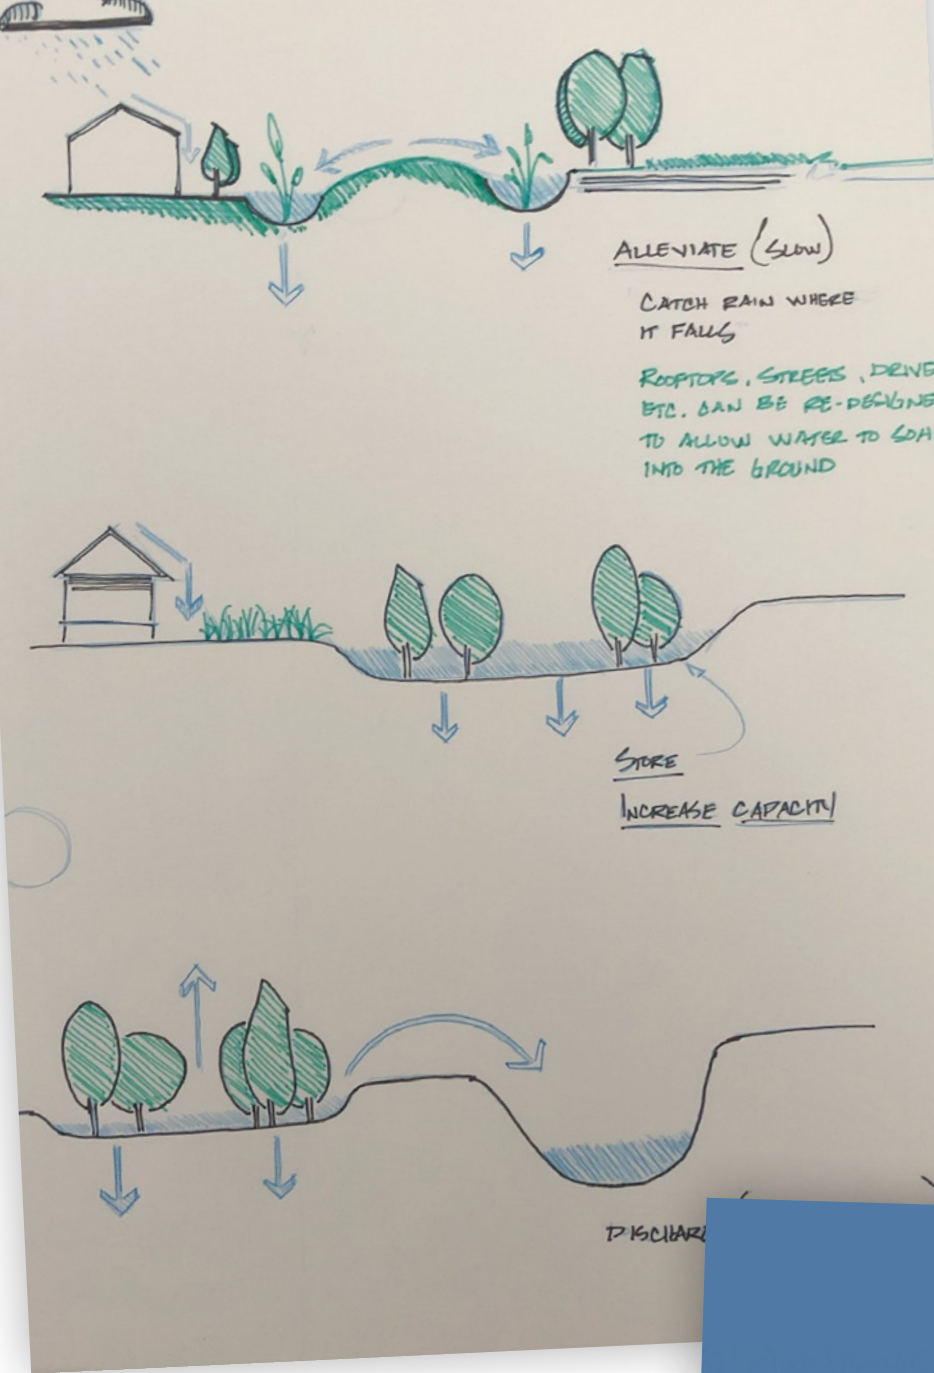 ALLEVIATE (SLOW)
CATCH RAIN WHERE
IT FALLS
ROOFTOPS, STREETS, DRIVE
ETC. CAN BE RE-DESIGNE
TO ALLOW WATER TO SOA
INTO THE GROUND
STORE
INCREASE CAPACITY
DISCHAR